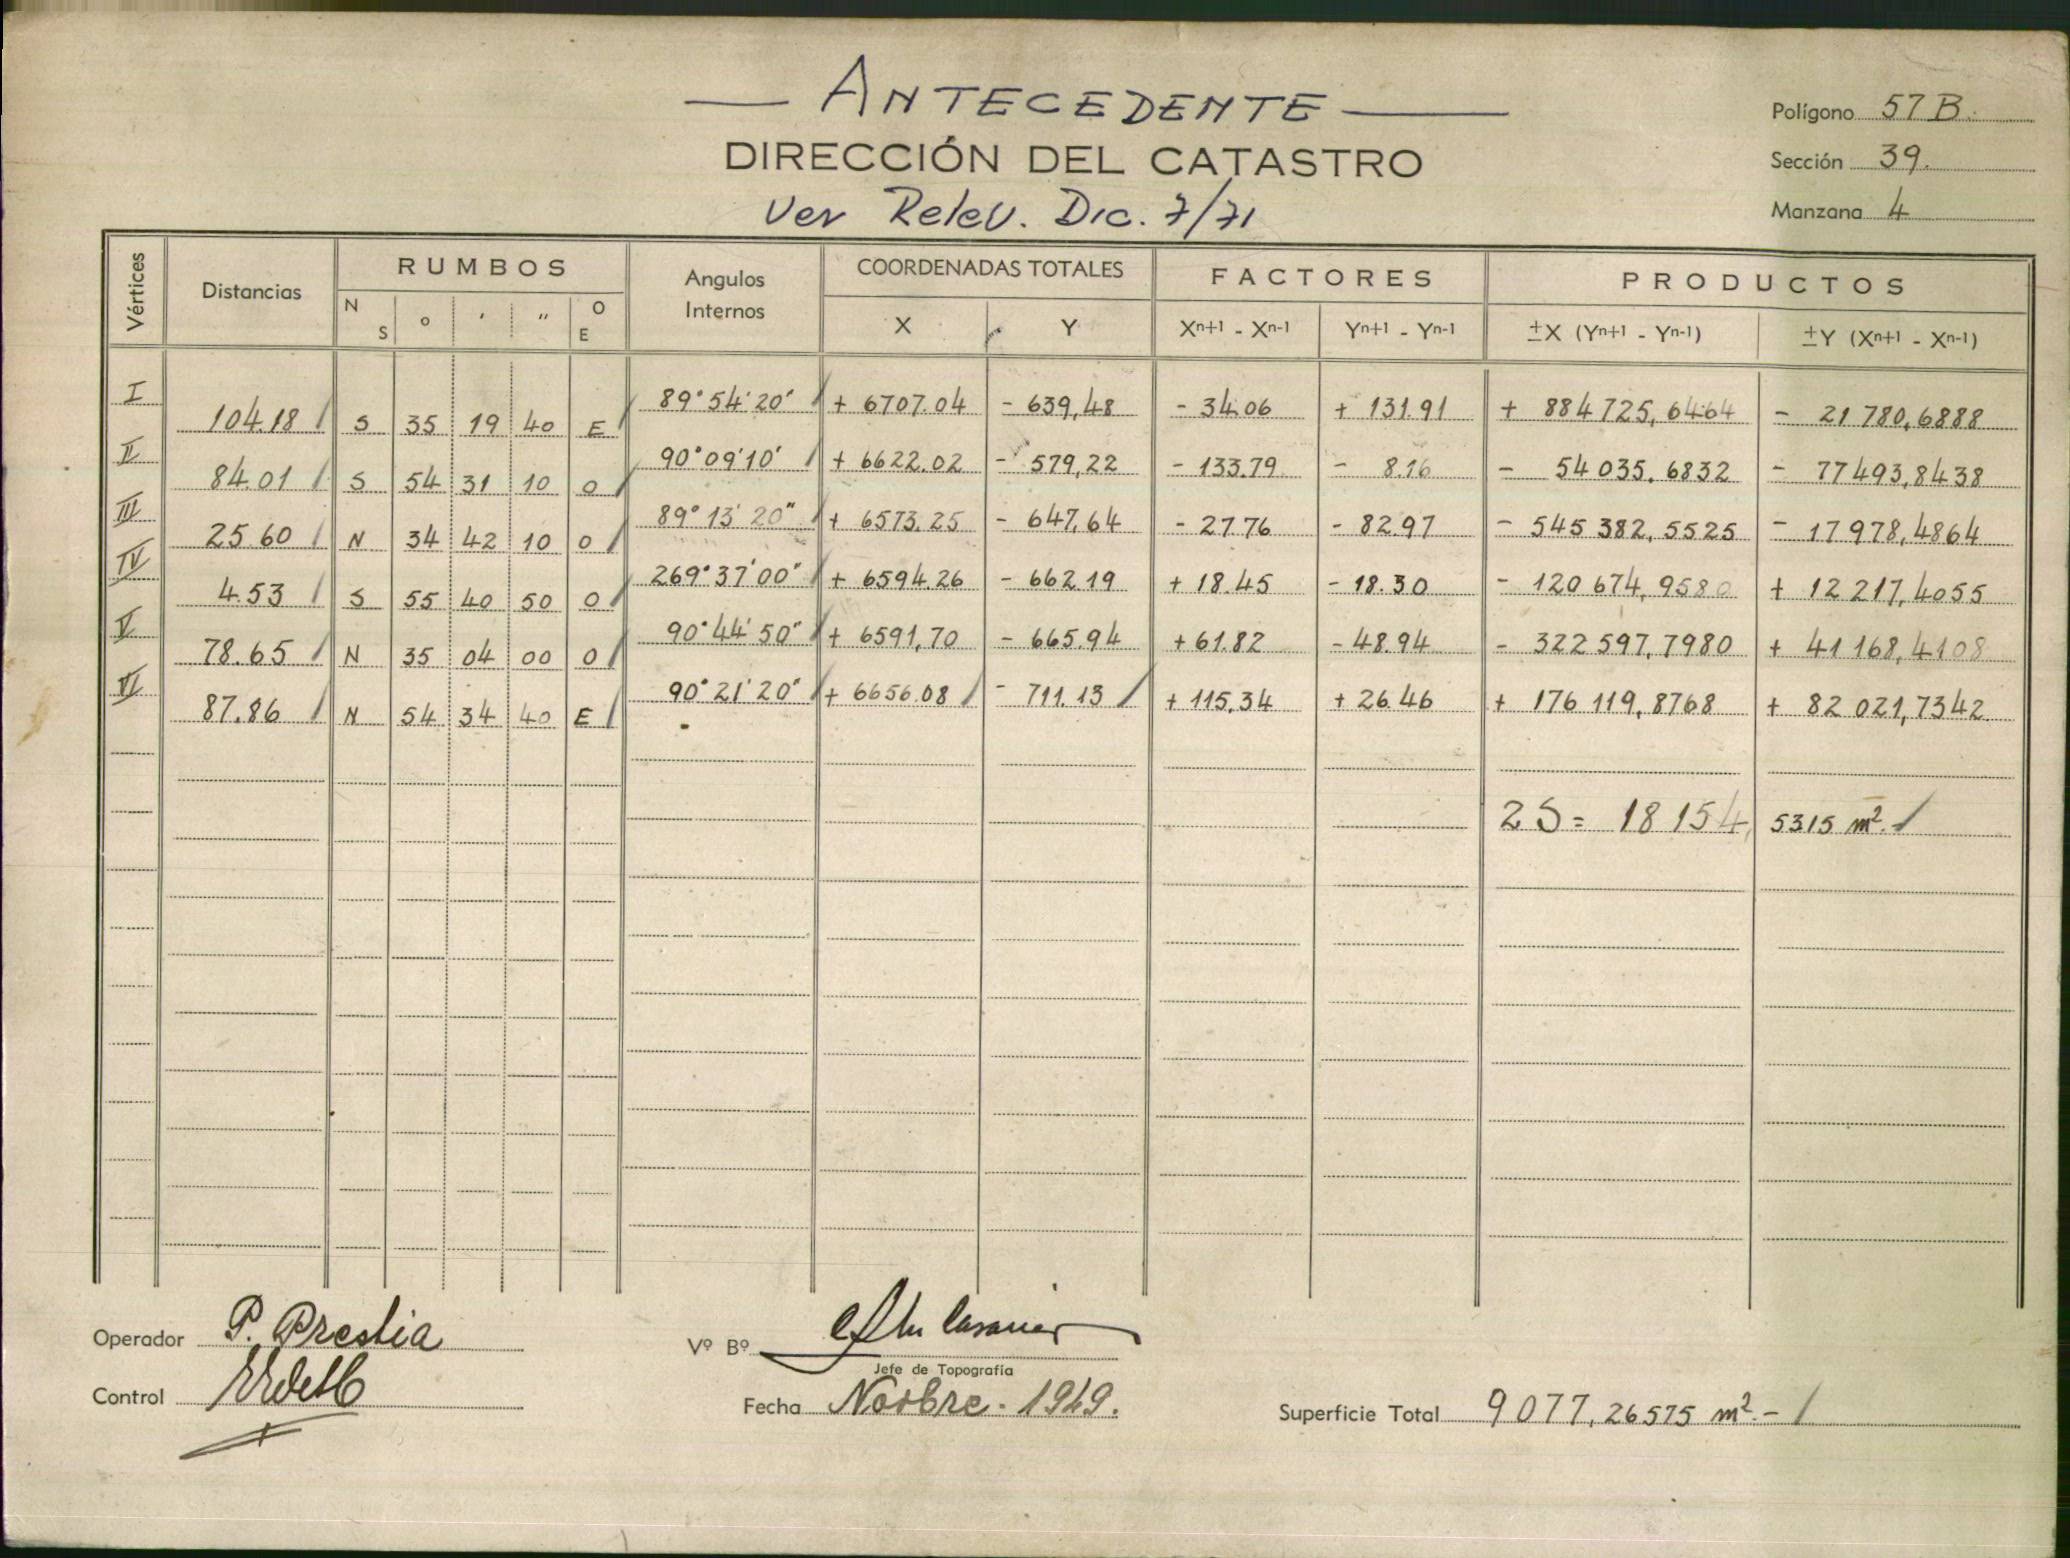 — ANTECEDENTE —
DIRECCIÓN DEL CATASTRO
Ver Relev. Dic. 7/71
Polígono 57 B.
Sección 39.
Manzana 4
Vértices Distancias RUMBOS Angulos Internos COORDENADAS TOTALES FACTORES PRODUCTOS
N S ° ' " O E X Y Xn+1 - Xn-1 Yn+1 - Yn-1 ±X (Yn+1 - Yn-1) ±Y (Xn+1 - Xn-1)
I 104.18 S 35 19 40 E 89° 54' 20" + 6707.04 - 639,48 - 34.06 + 131.91 + 884 725,6464 - 21 780,6888
II 84.01 S 54 31 10 O 90° 09' 10' + 6622.02 - 579,22 - 133.79 - 8.16 - 54 035.6832 - 77493,8438
III 25.60 N 34 42 10 O 89° 13' 20" + 6573.25 - 647,64 - 27.76 - 82.97 - 545 382,5525 - 17 978,4864
IV 4.53 S 55 40 50 O 269° 37' 00" + 6594.26 - 662.19 + 18.45 - 18.30 - 120 674,9580 + 12 217,4055
V 78.65 N 35 04 00 O 90° 44' 50" + 6591,70 - 665.94 + 61.82 - 48.94 - 322 597,7980 + 41 168,4108
VI 87.86 N 54 34 40 E 90° 21' 20" + 6656.08 - 711.13 + 115.34 + 26.46 + 176 119,8768 + 82 021,7342
2 S = 18 154, 5315 m².
Operador P. Prestia
Control
Vº Bº
Jefe de Topografía
Fecha Novbre. 1949.
Superficie Total 9077,26575 m².-